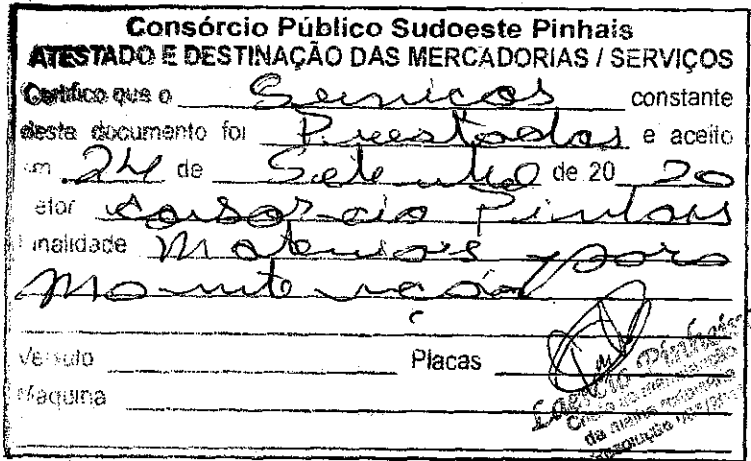 Consórcio Público Sudoeste Pinhais
ATESTADO E DESTINAÇÃO DAS MERCADORIAS / SERVIÇOS
Certifico que o Serviços constante
deste documento foi Prestados e aceito
em 24 de Setembro de 20 20
Setor Consórcio Pinhais
Finalidade Materiais para
Manutenção
Veículo Placas
Máquina
Laercio Pinhais
da
Resolução